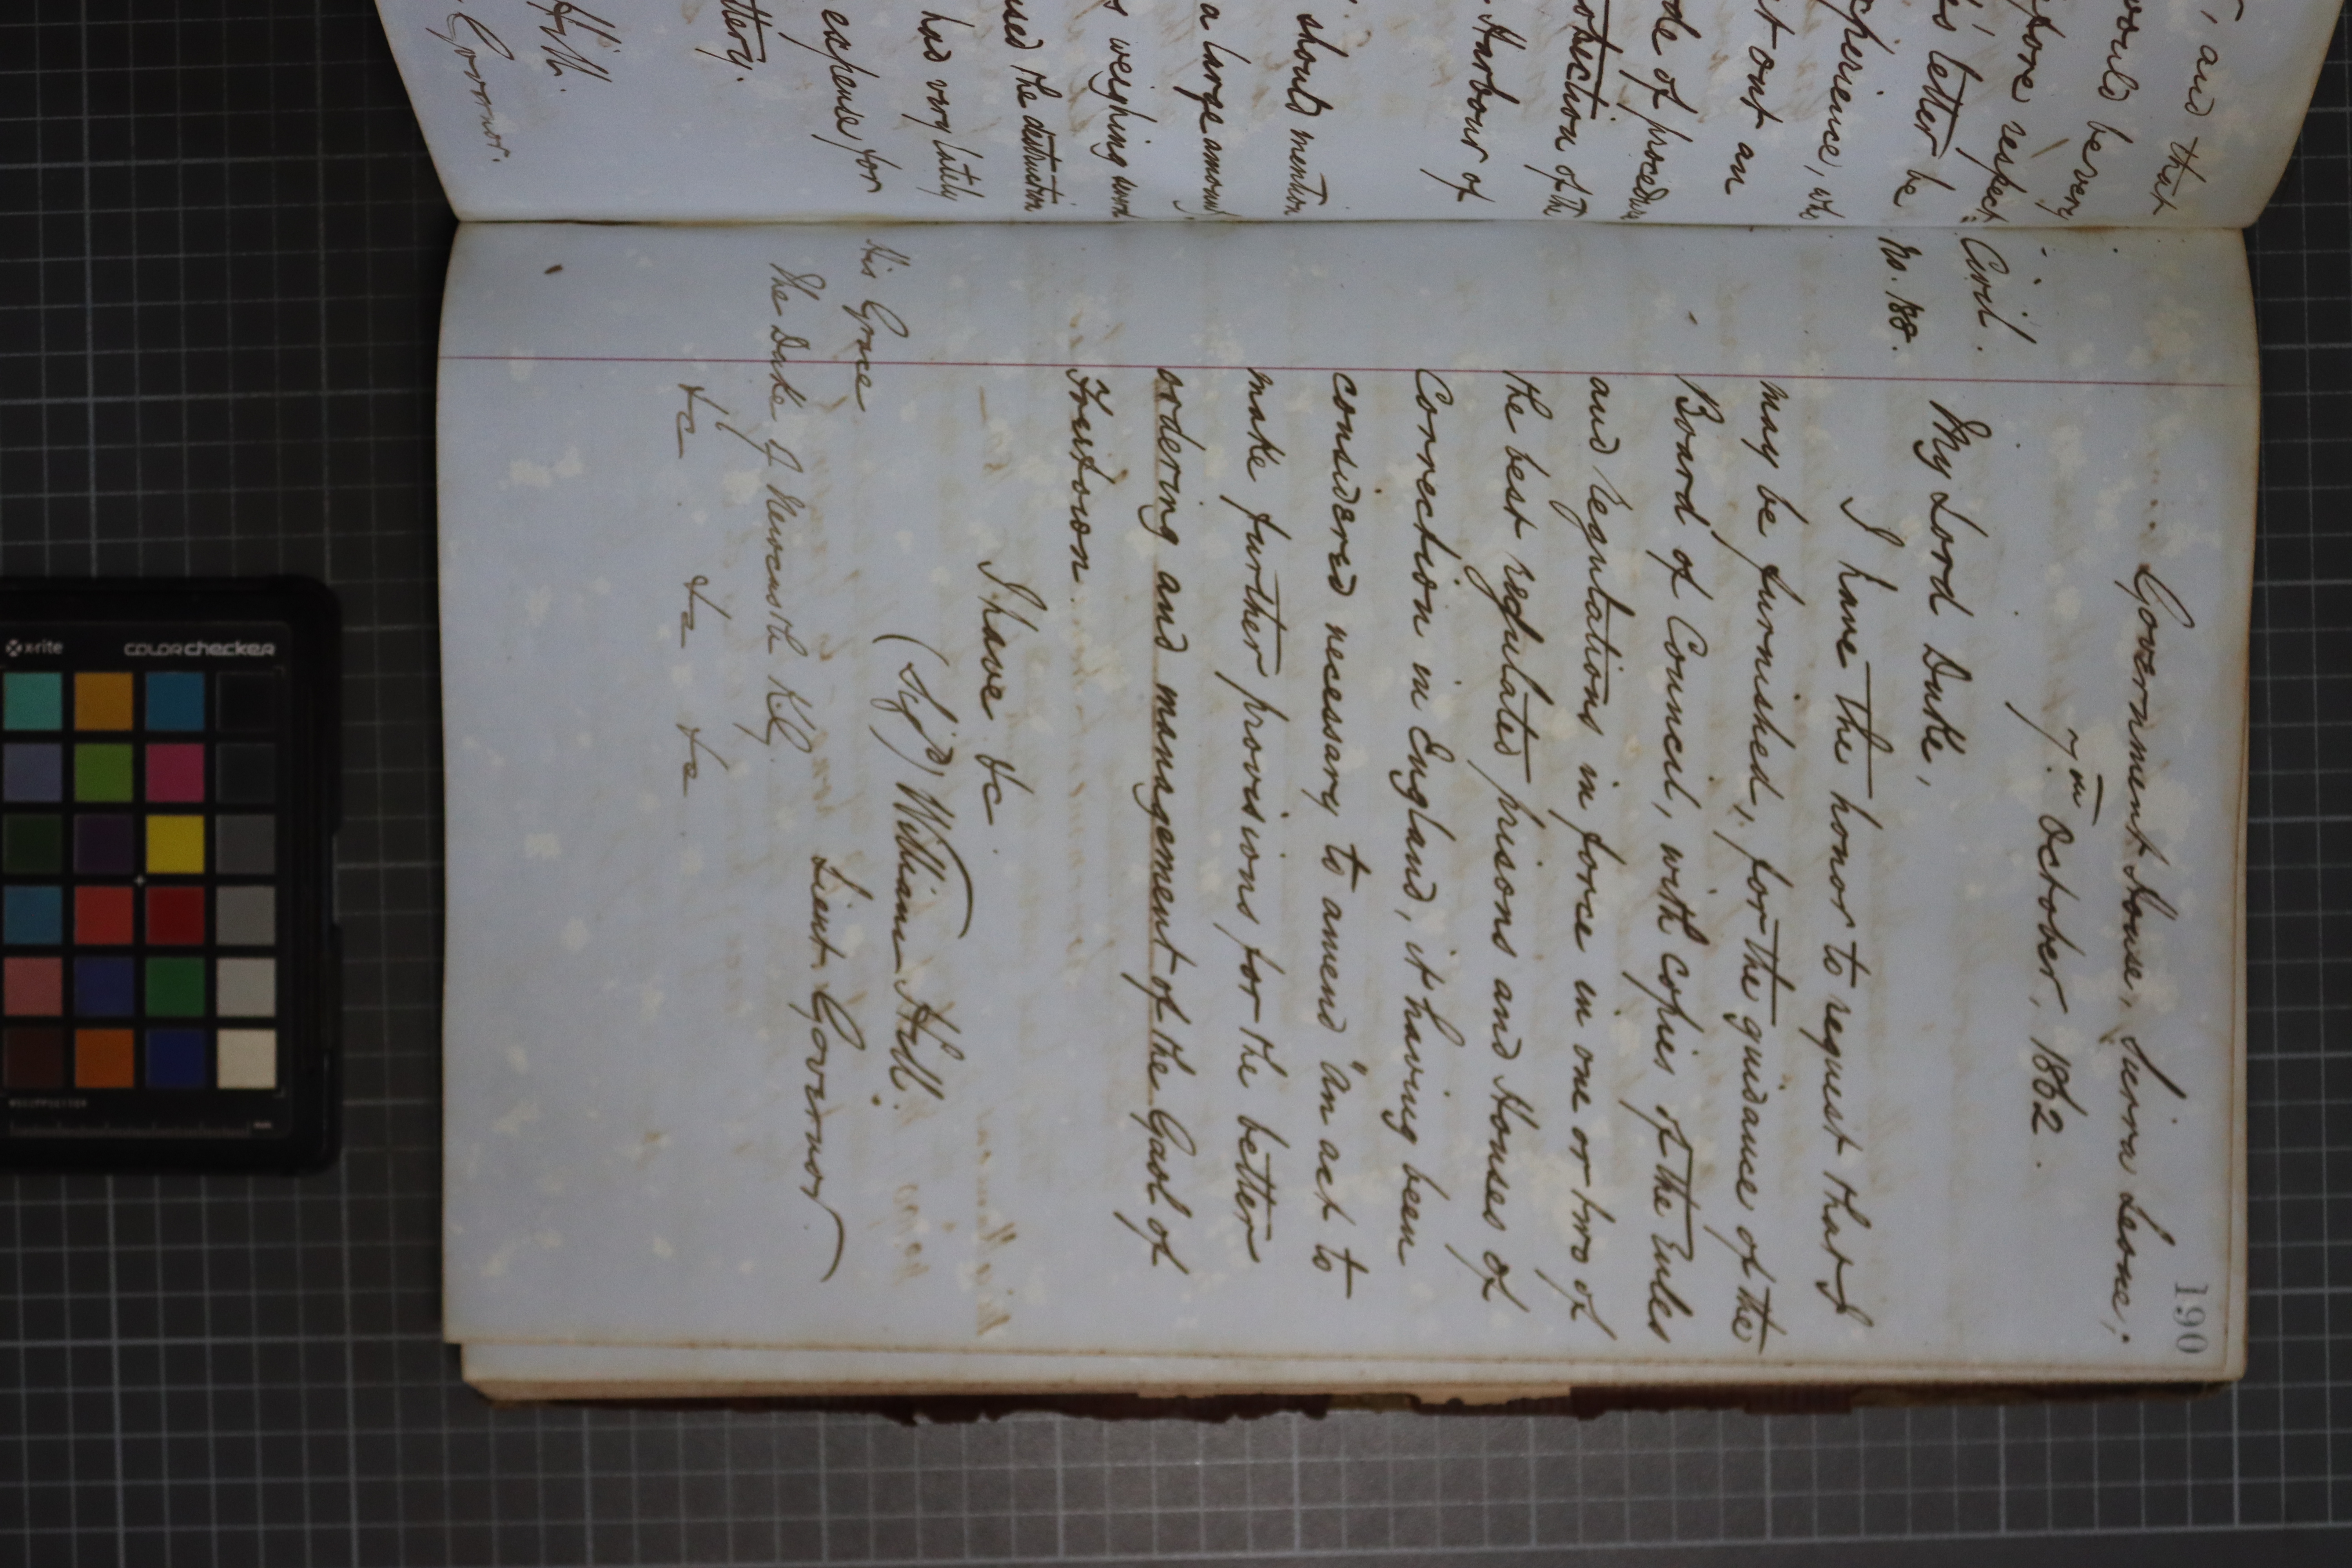 , and that
would be very
before respect-
his letter be
experience, who
out an
de of procedure
otection of the
Harbour of
should mention
a large amount
s weighing
used the destruction
had very lately
expense, for
ttery.
Hill.
Governor.
190
Government House, Sierra Leone,
7th October, 1862.
Civil.
No. 188.
My Lord Duke,
I have the honor to request that I
may be furnished, for the guidance of the
Board of Council, with copies of the Rules
and regulations in force in one or two of
the best regulated prisons and Houses of
Correction in England, it having been
considered necessary to amend "An act to
make further provisions for the better
ordering and management of the Gaol of
Freetown.
I have &c.
(Sigd) William Hill.
Lieut. Governor
His Grace
The Duke of Newcastle K.G.
&c &c &c
x-rite
colorchecker